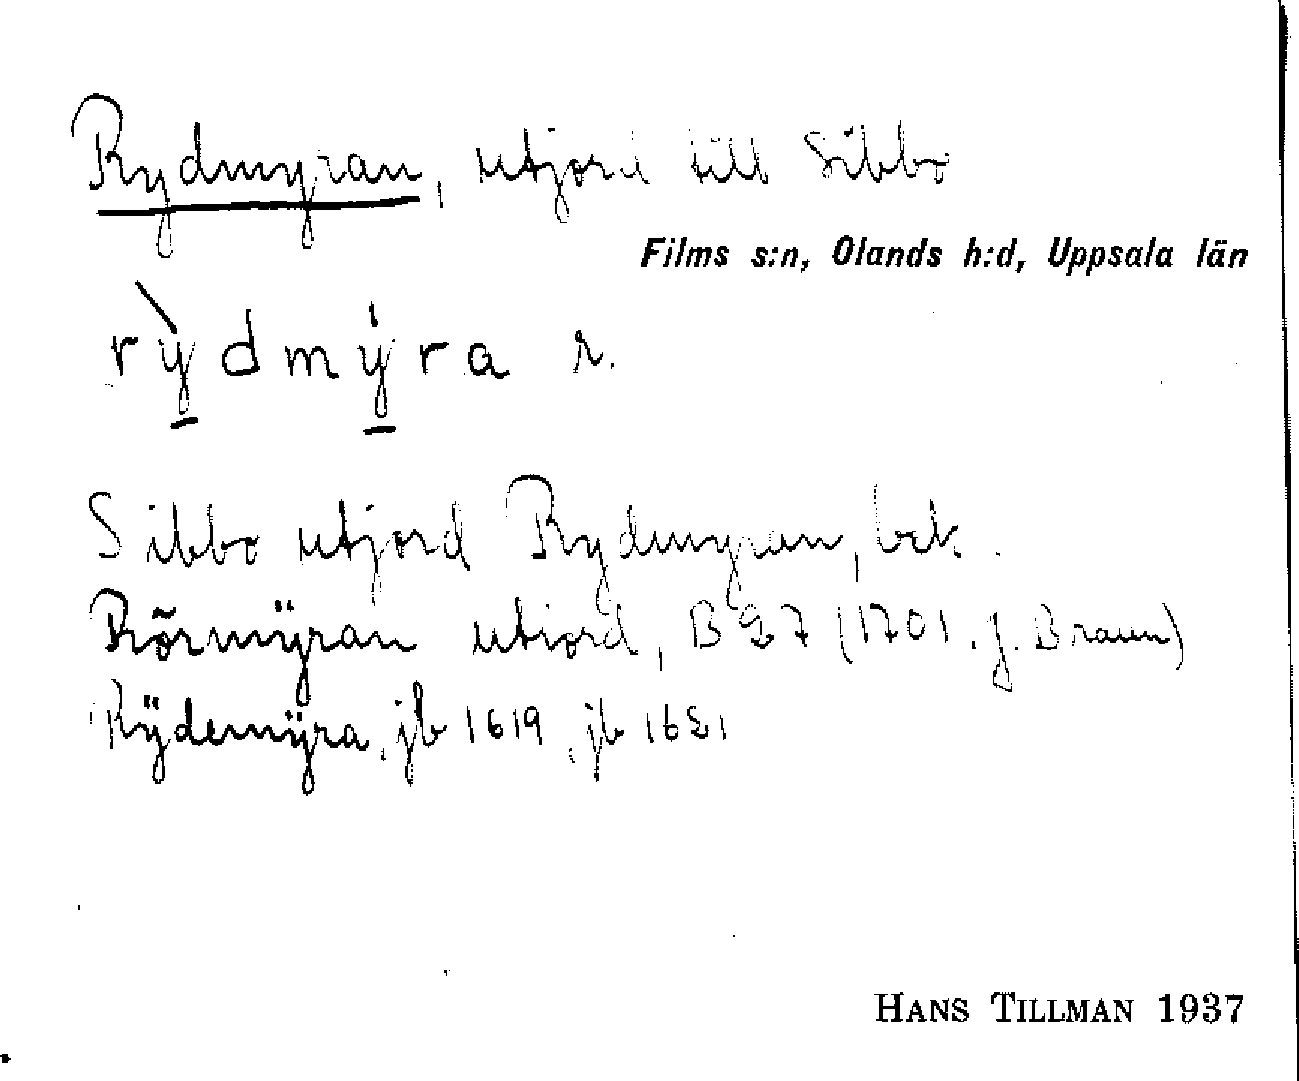 Rydmyran, utjord till Sibbo
Films s:n, Olands h:d, Uppsala län
rỳdmẏra r.
Sibbo utjord Rydmyran, bek.
Rõrmÿran utiord, B 27 (1701. J. Braun)
Rÿdemÿra, jb 1619, jb 1621
HANS TILLMAN 1937